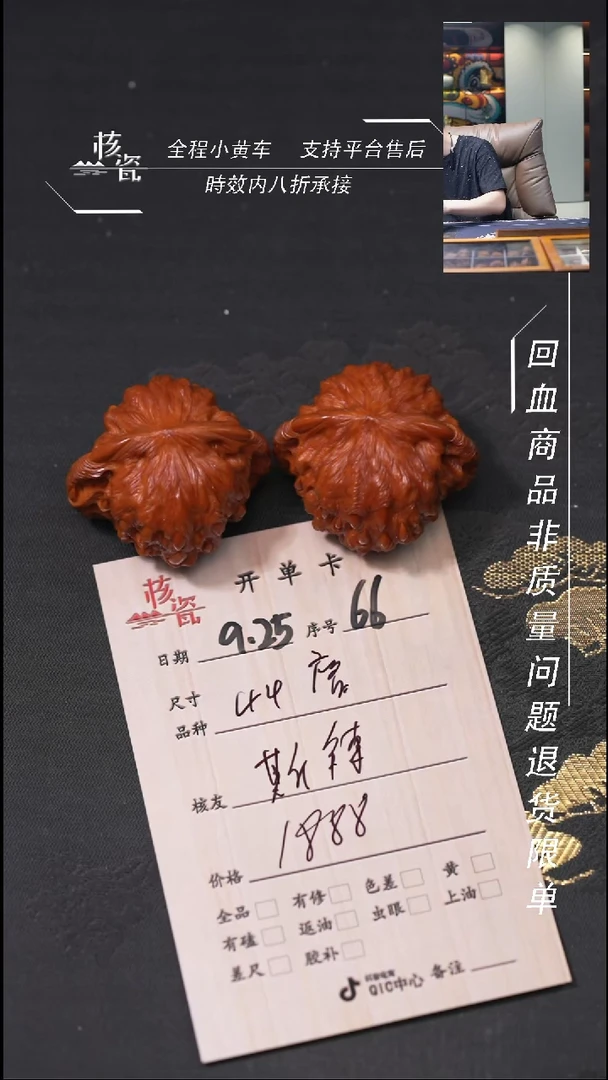 核瓷
全程小黄车 支持平台售后
時效内八折承接
回血商品非质量问题退货限单
核瓷 开单卡
日期 9.25 序号 66
尺寸
品种 44
核友
价格 1888
全品 有修 色差 黄
有磕 返油 虫眼 上油
差尺 胶补
抖音电商
QIC中心 备注